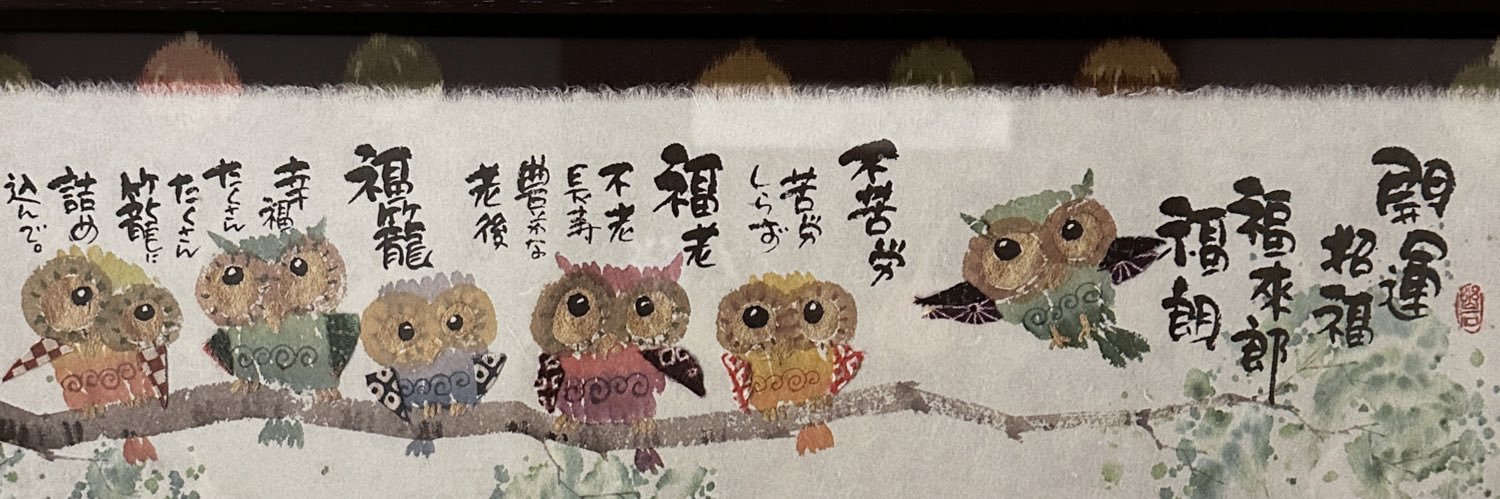 開運
招福
福来郎
福朗
不苦労
苦労
しらず
福老
不老
長寿
豊かな
老後
福籠
幸福
たくさん
たくさん
籠に
詰め
込んで。